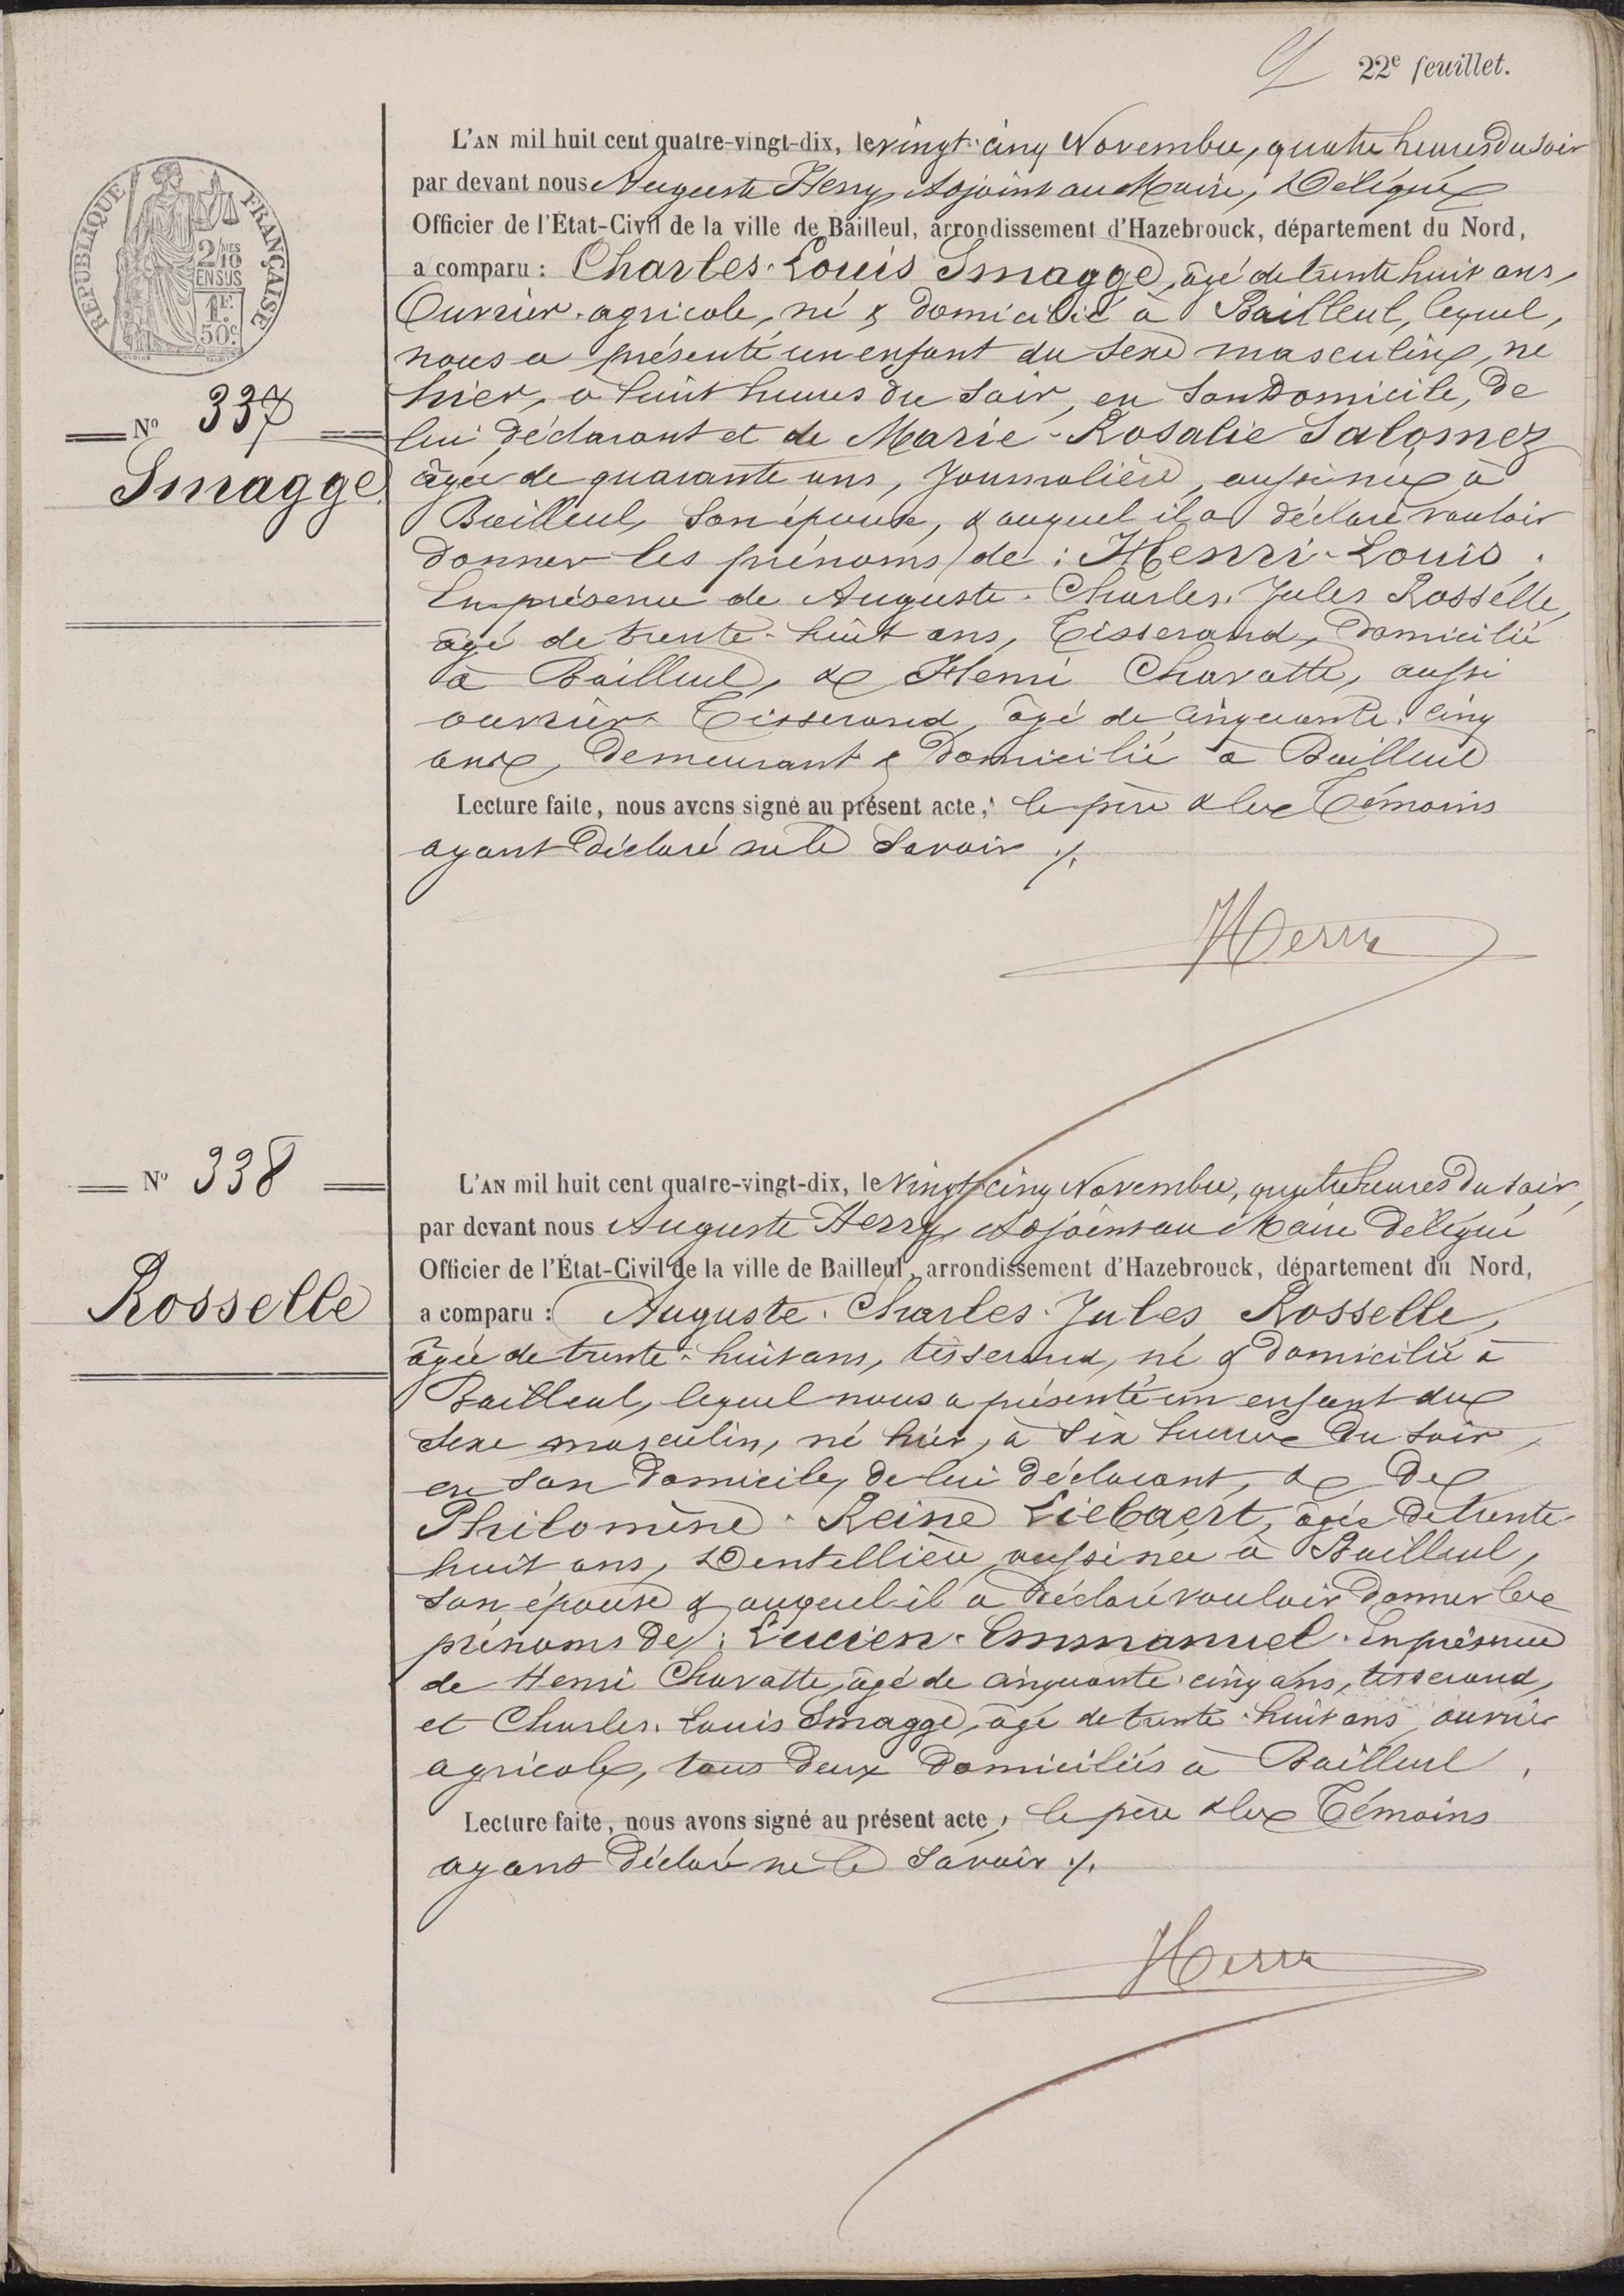 22e feuillet.
RÉPUBLIQUE FRANÇAISE
2/10MES
EN SUS
1F.
50c.
L'AN mil huit cent quatre-vingt-dix, le vingt-cinq Novembre, quatre heures du soir
par devant nous Auguste Herry, Adjoint au Maire, Délégué
Officier de l'État-Civil de la ville de Bailleul, arrondissement d'Hazebrouck, département du Nord,
a comparu : Charles-Louis Smagge, âgé de trente huit ans,
Ouvrier-agricole, né & domicilié à Bailleul, lequel,
nous a présenté un enfant du sexe masculin, né
No 337
hier, à huit heures du soir, en son domicile, de
lui déclarant et de Marie-Rosalie Salomez
Smagge
âgée de quarante ans, Journalière, aussi née à
Bailleul, son épouse, & auquel il a déclaré vouloir
donner les prénoms de : Henri-Louis.
En présence de Auguste-Charles-Jules Rosselle,
âgé de trente-huit ans, Tisserand, Domicilié
à Bailleul, & Henri Chavatte, aussi
ouvrier Tisserand, âgé de cinquante-cinq
ans, Demeurant & Domicilié à Bailleul
Lecture faite, nous avons signé au présent acte, le père & les Témoins
ayant déclaré ne le savoir ./.
Herry
No 338
L'AN mil huit cent quatre-vingt-dix, le vingt-cinq Novembre, quatre heures du soir,
par devant nous Auguste Herry, Adjoint au Maire Délégué
Officier de l'État-Civil de la ville de Bailleul, arrondissement d'Hazebrouck, département du Nord,
Rosselle
a comparu : Auguste-Charles-Jules Rosselle,
âgée de trente-huit ans, tisserand, né & domicilié à
Bailleul, lequel nous a présenté un enfant du
sexe masculin, né hier, à six heures du soir,
en son domicile, de lui déclarant, & de
Philomène-Reine Liebaert, âgée de trente
huit ans, Dentellière, aussi née à Bailleul,
son épouse & auquel il a déclaré vouloir donner les
prénoms de : Lucien-Emmanuel. En présence
de Henri Chavatte, âgé de cinquante-cinq ans, tisserand,
et Charles-Louis Smagge, âgé de trente-huit ans, ouvrier
agricole, tous deux domiciliés à Bailleul.
Lecture faite, nous avons signé au présent acte, le père & les Témoins
ayant déclaré ne le savoir ./.
Herry